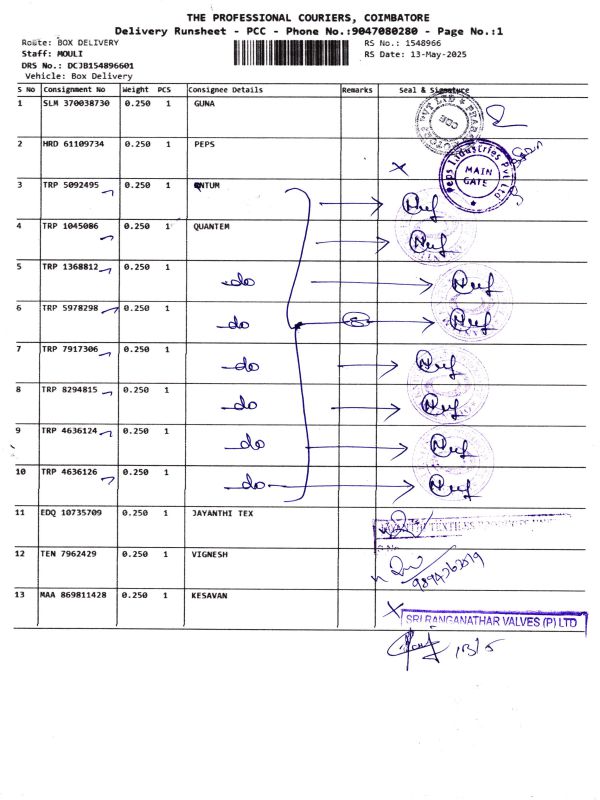 THE PROFESSIONAL COURIERS, COIMBATORE
Delivery Runsheet - PCC - Phone No.:9047080280 - Page No.:1
Route: BOX DELIVERY
RS No.: 1548966
Staff: MOULI
RS Date: 13-May-2025
DRS No.: DCJB154896601
Vehicle: Box Delivery
S No Consignment No Weight PCS Consignee Details Remarks Seal & Signature
1 SLM 370038730 0.250 1 GUNA
2 HRD 61109734 0.250 1 PEPS
Peps Industries Pvt Ltd
MAIN GATE
3 TRP 5092495 0.250 1 QNTUM
4 TRP 1045086 0.250 1 QUANTEM
5 TRP 1368812 0.250 1 do
6 TRP 5978298 0.250 1 do 8
7 TRP 7917306 0.250 1 do
8 TRP 8294815 0.250 1 do
9 TRP 4636124 0.250 1 do
10 TRP 4636126 0.250 1 do
11 EDQ 10735709 0.250 1 JAYANTHI TEX
12 TEN 7962429 0.250 1 VIGNESH
13 MAA 869811428 0.250 1 KESAVAN
SRI RANGANATHAR VALVES (P) LTD
13/5